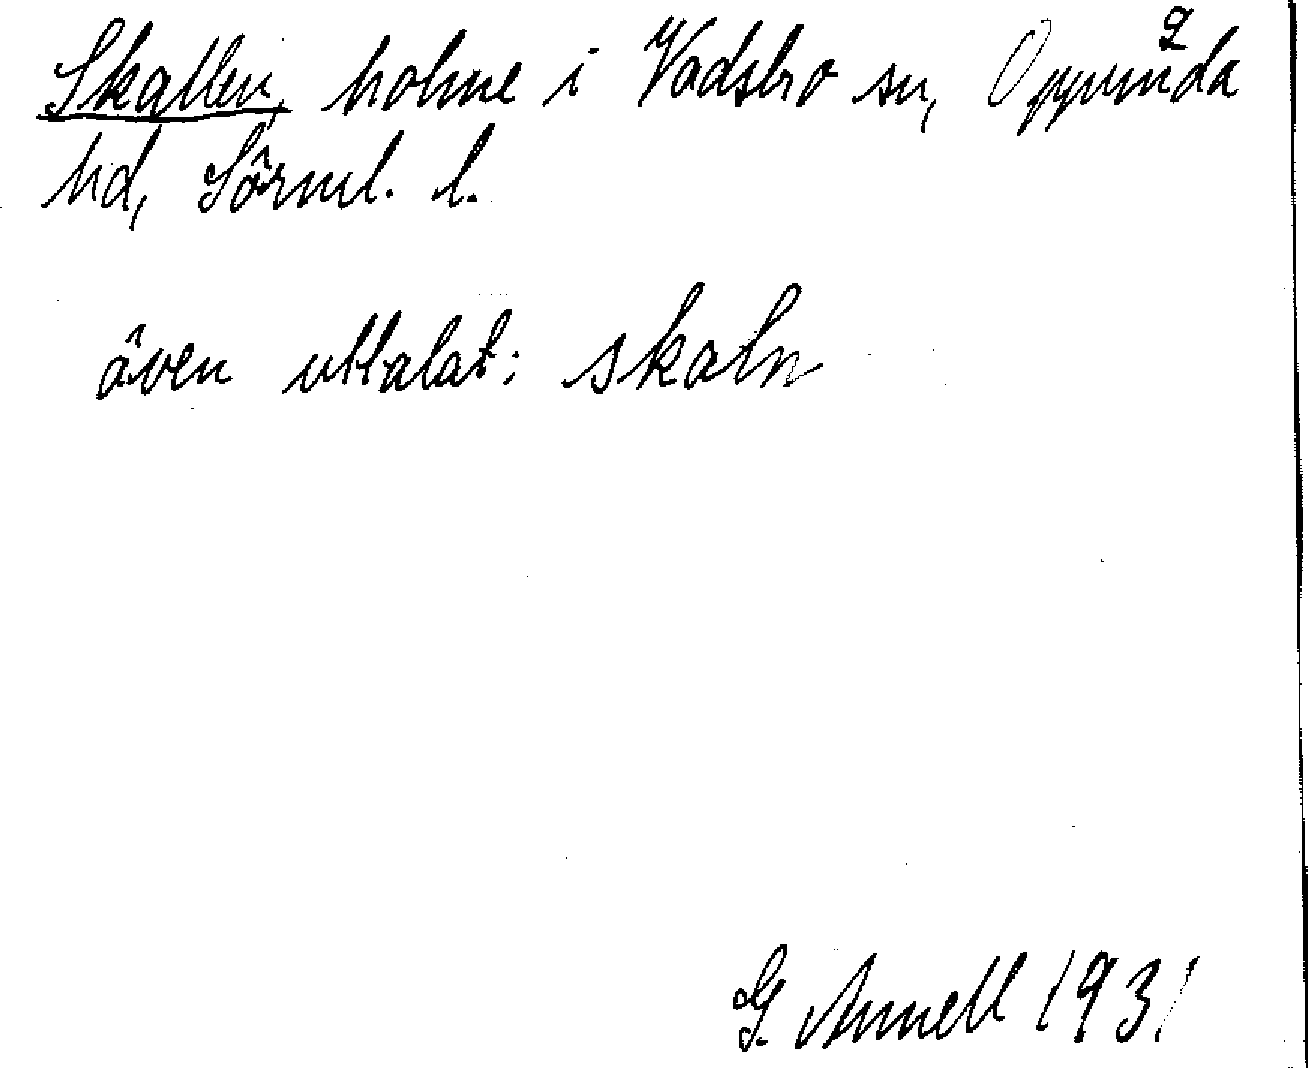 Skallen, holme i Vadsbro sn, Oppunda
hd, Sörml. l.
även uttalat: skaln
G. Annell 1931